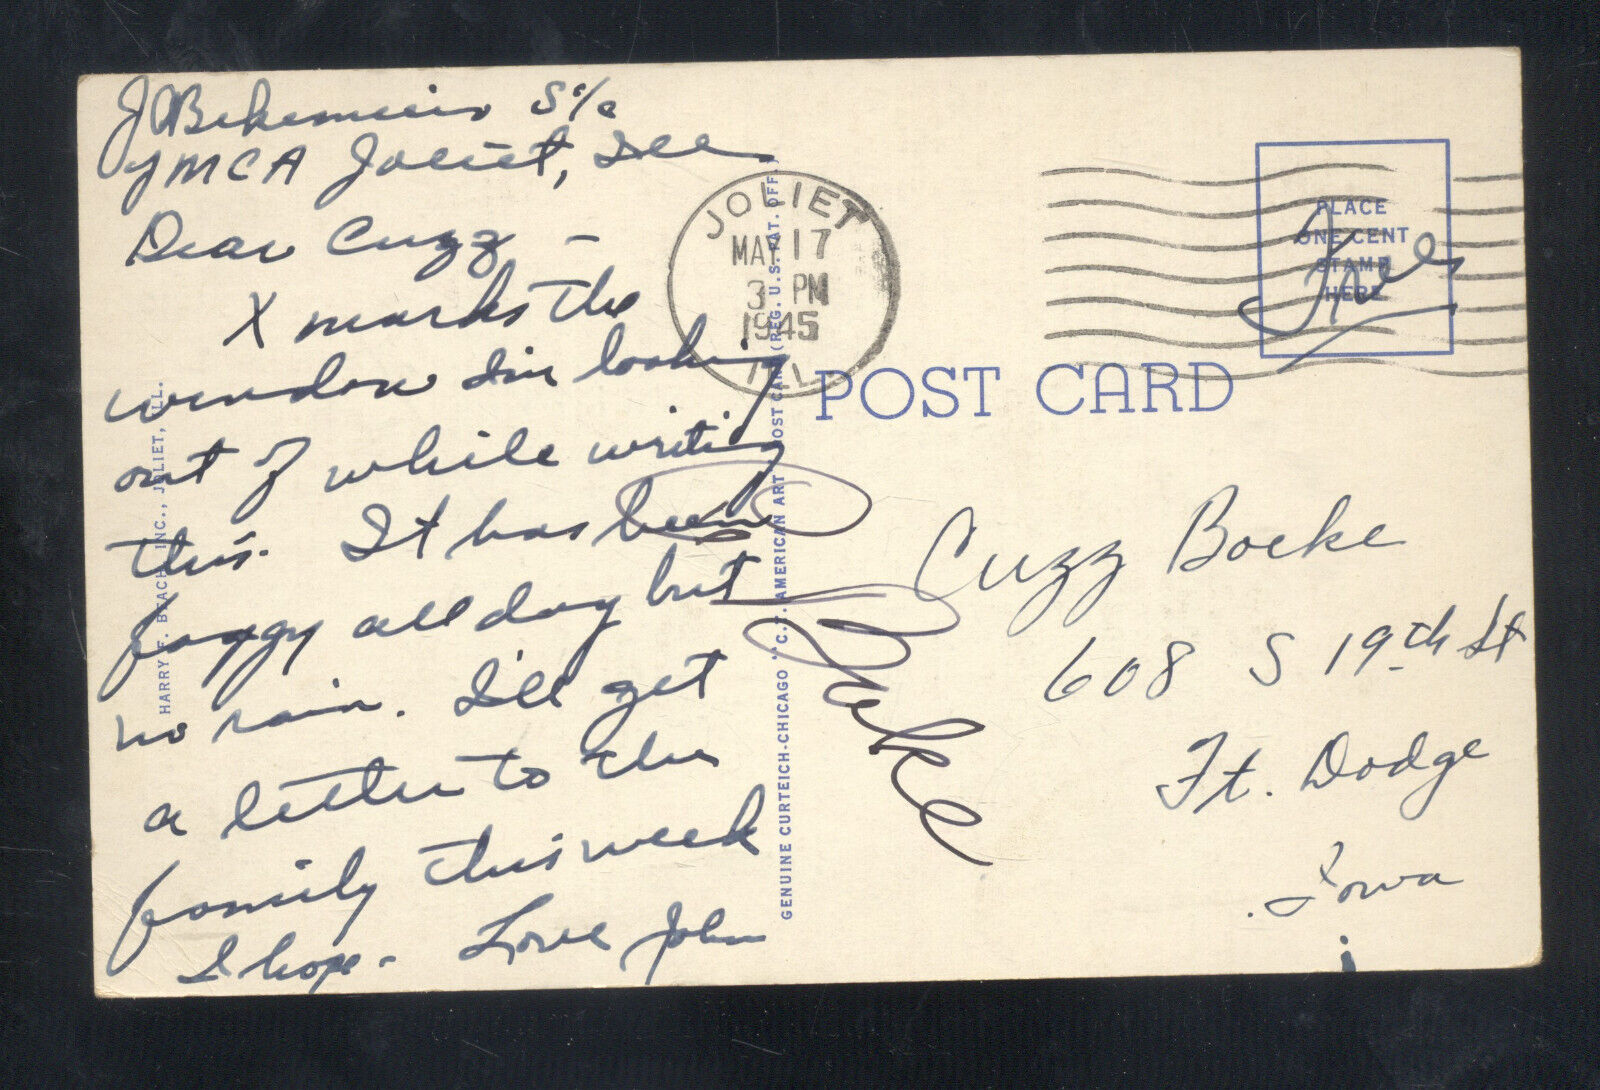 YMCA Joliet, Ill
Dear Cuzz -
X marks the
window I'm looking
out of while writing
this. It has been
foggy all day but
no rain. I'll get
a letter to the
family this week
I hope - Love John
HARRY F. BEACH INC., JOLIET, ILL.
JOLIET
MAY 17
3 PM
1945
ILL
GENUINE CURTEICH-CHICAGO "C.T. AMERICAN ART" POST CARD (REG. U.S. PAT. OFF.)
PLACE
ONE CENT
STAMP
HERE
Free
POST CARD
Cuzz Boeke
608 S 19th St
Ft. Dodge
Iowa